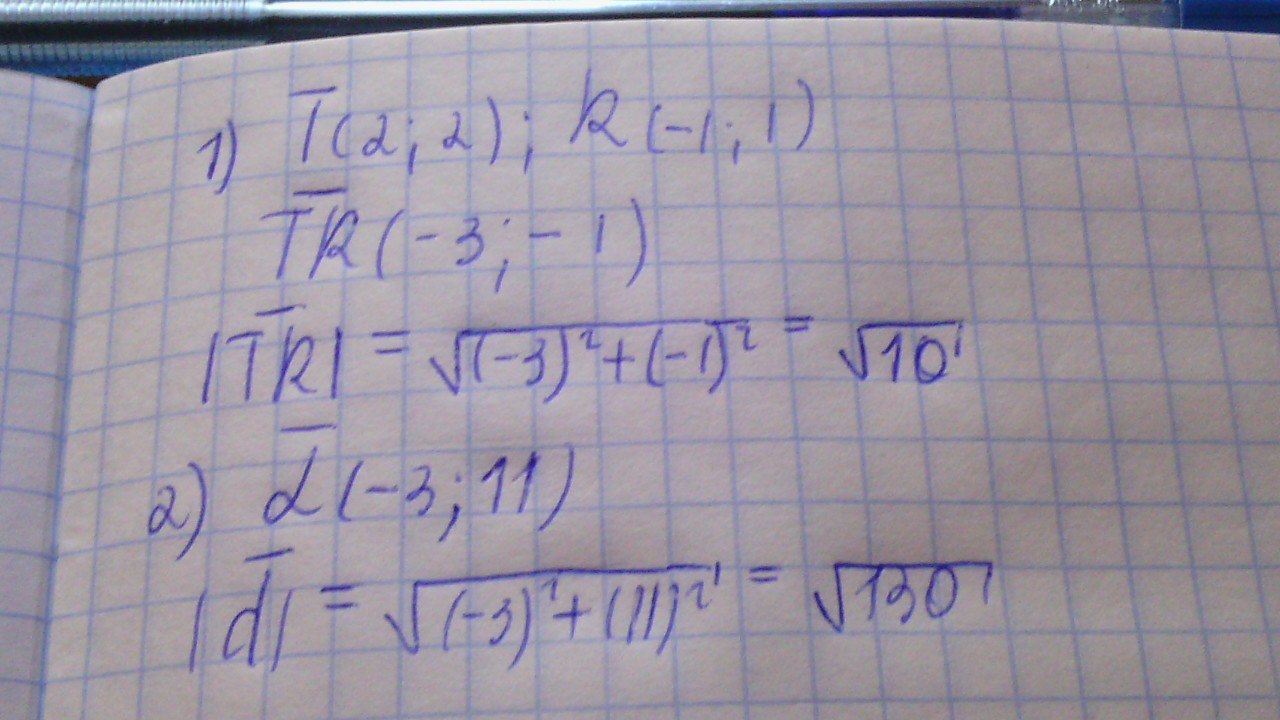 1) T(2; 2); K(-1; 1)
T̅K̅(-3; -1)
|T̅K̅| = √((-3)²+(-1)²) = √10
2) d̅(-3; 11)
|d̅| = √((-3)²+(11)²) = √130